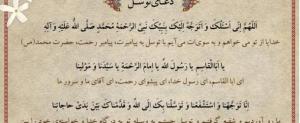 دعای توسل
اَللّهُمَّ اِنّی اَسْئَلُکَ وَ اَتَوَجَّهُ اِلَیْکَ بِنَبِیِّکَ نَبِیِّ الرَّحْمَةِ مُحَمَّدٍ صَلَّی اللهُ عَلَیْهِ وَ آلِهِ
خدایا از تو می خواهم و به سوی‌ات می‌آیم با توسل به پیامبرت، پیامبر رحمت، حضرت محمد(ص)
یا اَبَاالْقاسِمِ یا رَسُولَ اللهِ یا اِمامَ الرَّحْمَةِ یا سَیِّدَنا وَ مَوْلینا
ای ابا القاسم، ای رسول خدا، ای پیشوای رحمت، ای آقای ما و سرور ما
اِنّا تَوَجَّهْنا وَ اسْتَشْفَعْنا وَ تَوَسَّلْنا بِکَ اِلَی اللهِ وَ قَدَّمْناکَ بَیْنَ یَدَیْ حاجاتِنا